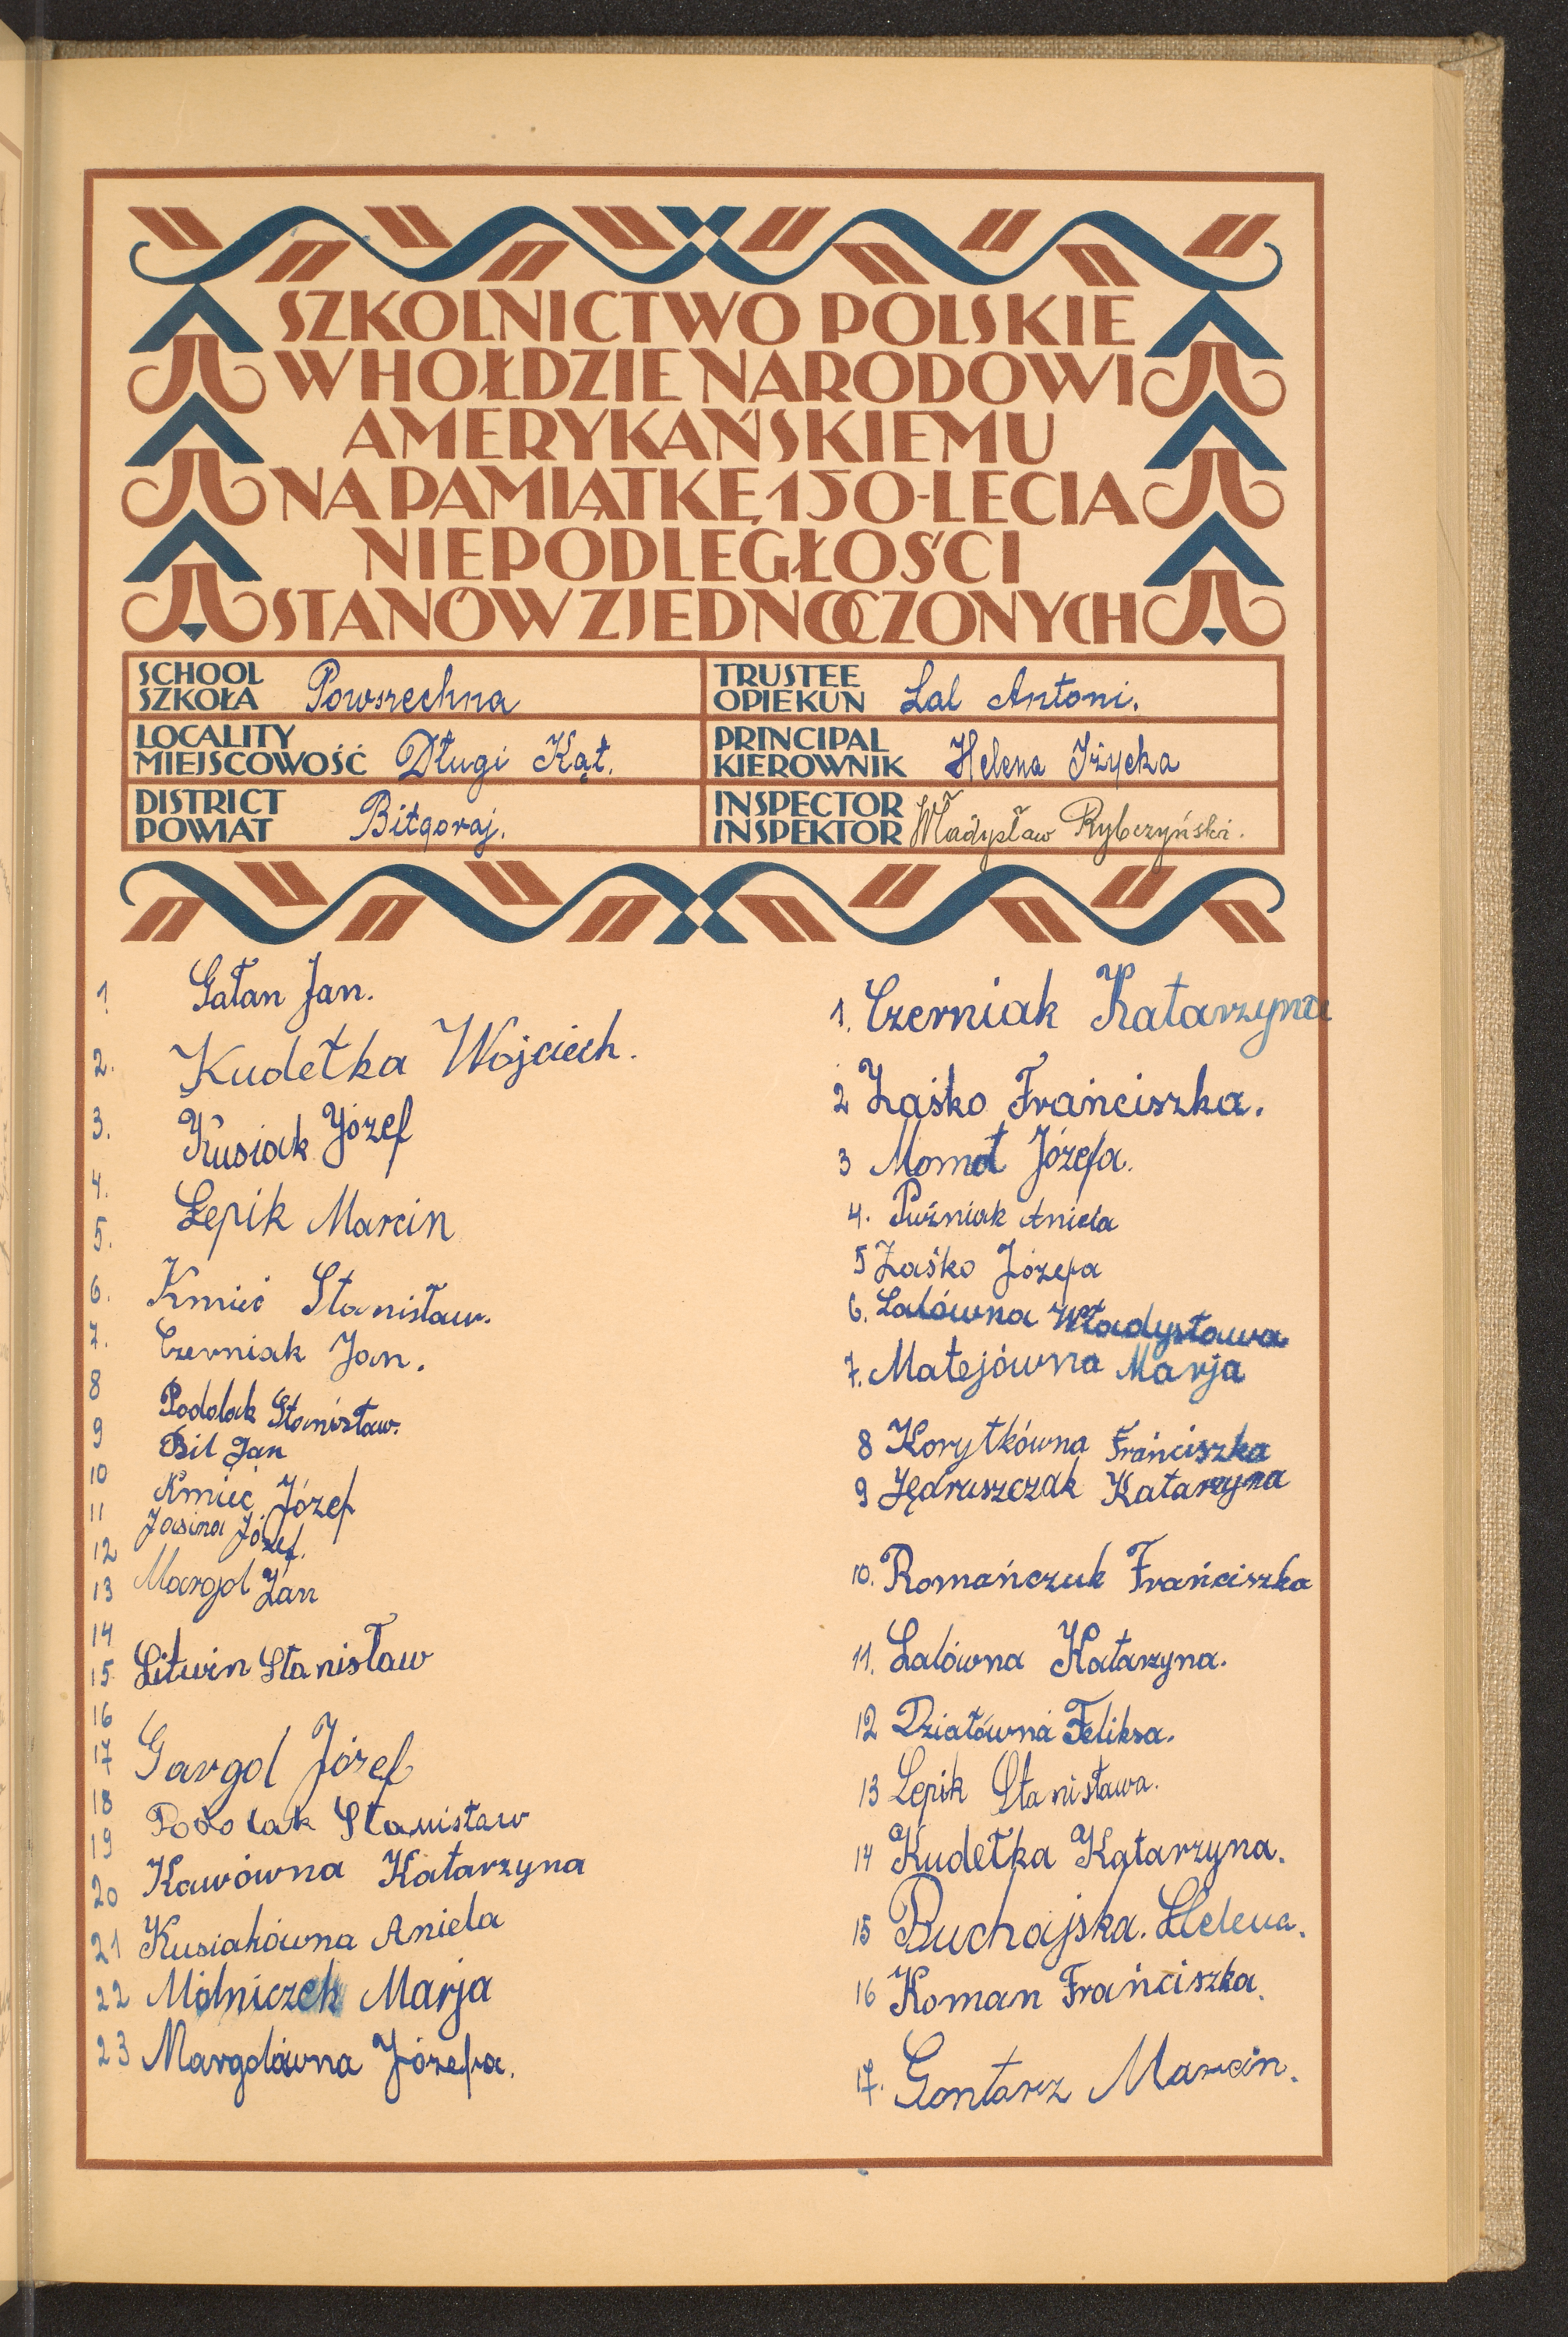 SZKOLNICTWO POLSKIE
W HOŁDZIE NARODOWI
AMERYKAŃSKIEMU
NA PAMIĄTKĘ 150-LECIA
NIEPODLEGŁOŚCI
STANÓW ZJEDNOCZONYCH
SCHOOL
SZKOŁA Powszechna
TRUSTEE
OPIEKUN Lal Antoni.
LOCALITY
MIEJSCOWOŚĆ Długi Kąt.
PRINCIPAL
KIEROWNIK Helena Iżycka
DISTRICT
POWIAT Biłgoraj.
INSPECTOR
INSPEKTOR Władysław Rybczyński.
1. Gałan Jan.
2. Kudełka Wojciech.
3. Kusiak Józef
4.
Łepik Marcin
5.
6. Kmieć Stanisław.
7. Czerniak Jan.
8 Podolak Stanisław.
9 Bil Jan
10 Kmieć Józef
11 Jasina Józef.
12
13 Margol Jan
14
15 Litwin Stanisław
16
17 Gargol Józef
18
19 Podolak Stanisław
20 Kawówna Katarzyna
21 Kusiakówna Aniela
22 Mołniczek Marja
23 Margolówna Józefa.
1. Czerniak Katarzyna
2 Zaśko Frańciszka.
3 Momot Józefa.
4. Puźniak Aniela
5 Zaśko Józefa
6. Lalówna Władysława
7. Matejówna Marja
8 Korytkówna Frańciszka
9 Jędruszczak Katarzyna
10. Romańczuk Frańciszka
11. Lalówna Katarzyna.
12 Działówna Feliksa.
13 Lepik Stanisława.
14 Kudełka Katarzyna.
15 Buchajska. Helena.
16 Koman Frańciszka.
17. Gontarz Marcin.